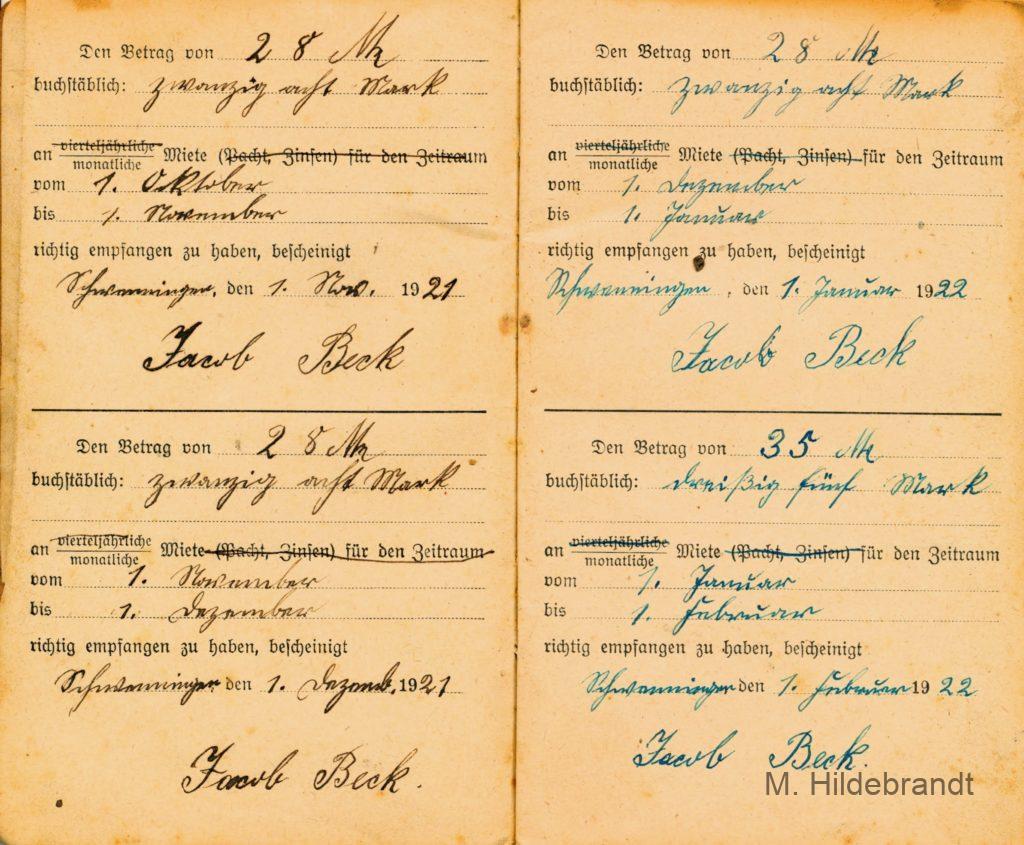 Den Betrag von 28 M
buchstäblich: zwanzig acht Mark
an vierteljährliche
monatliche Miete (Pacht, Zinsen) für den Zeitraum
vom 1. Oktober
bis 1. November
richtig empfangen zu haben, bescheinigt
Schwenningen, den 1. Nov. 1921
Jacob Beck
Den Betrag von 28 M
buchstäblich: zwanzig acht Mark
an vierteljährliche
monatliche Miete (Pacht, Zinsen) für den Zeitraum
vom 1. November
bis 1. Dezember
richtig empfangen zu haben, bescheinigt
Schwenningen den 1. Dezemb. 1921
Jacob Beck.
Den Betrag von 28 M
buchstäblich: zwanzig acht Mark
an vierteljährliche
monatliche Miete (Pacht, Zinsen) für den Zeitraum
vom 1. Dezember
bis 1. Januar
richtig empfangen zu haben, bescheinigt
Schwenningen, den 1. Januar 1922
Jacob Beck
Den Betrag von 35 M
buchstäblich: dreißig fünf Mark
an vierteljährliche
monatliche Miete (Pacht, Zinsen) für den Zeitraum
vom 1. Januar
bis 1. Februar
richtig empfangen zu haben, bescheinigt
Schwenningen den 1. Februar 1922
Jacob Beck.
M. Hildebrandt